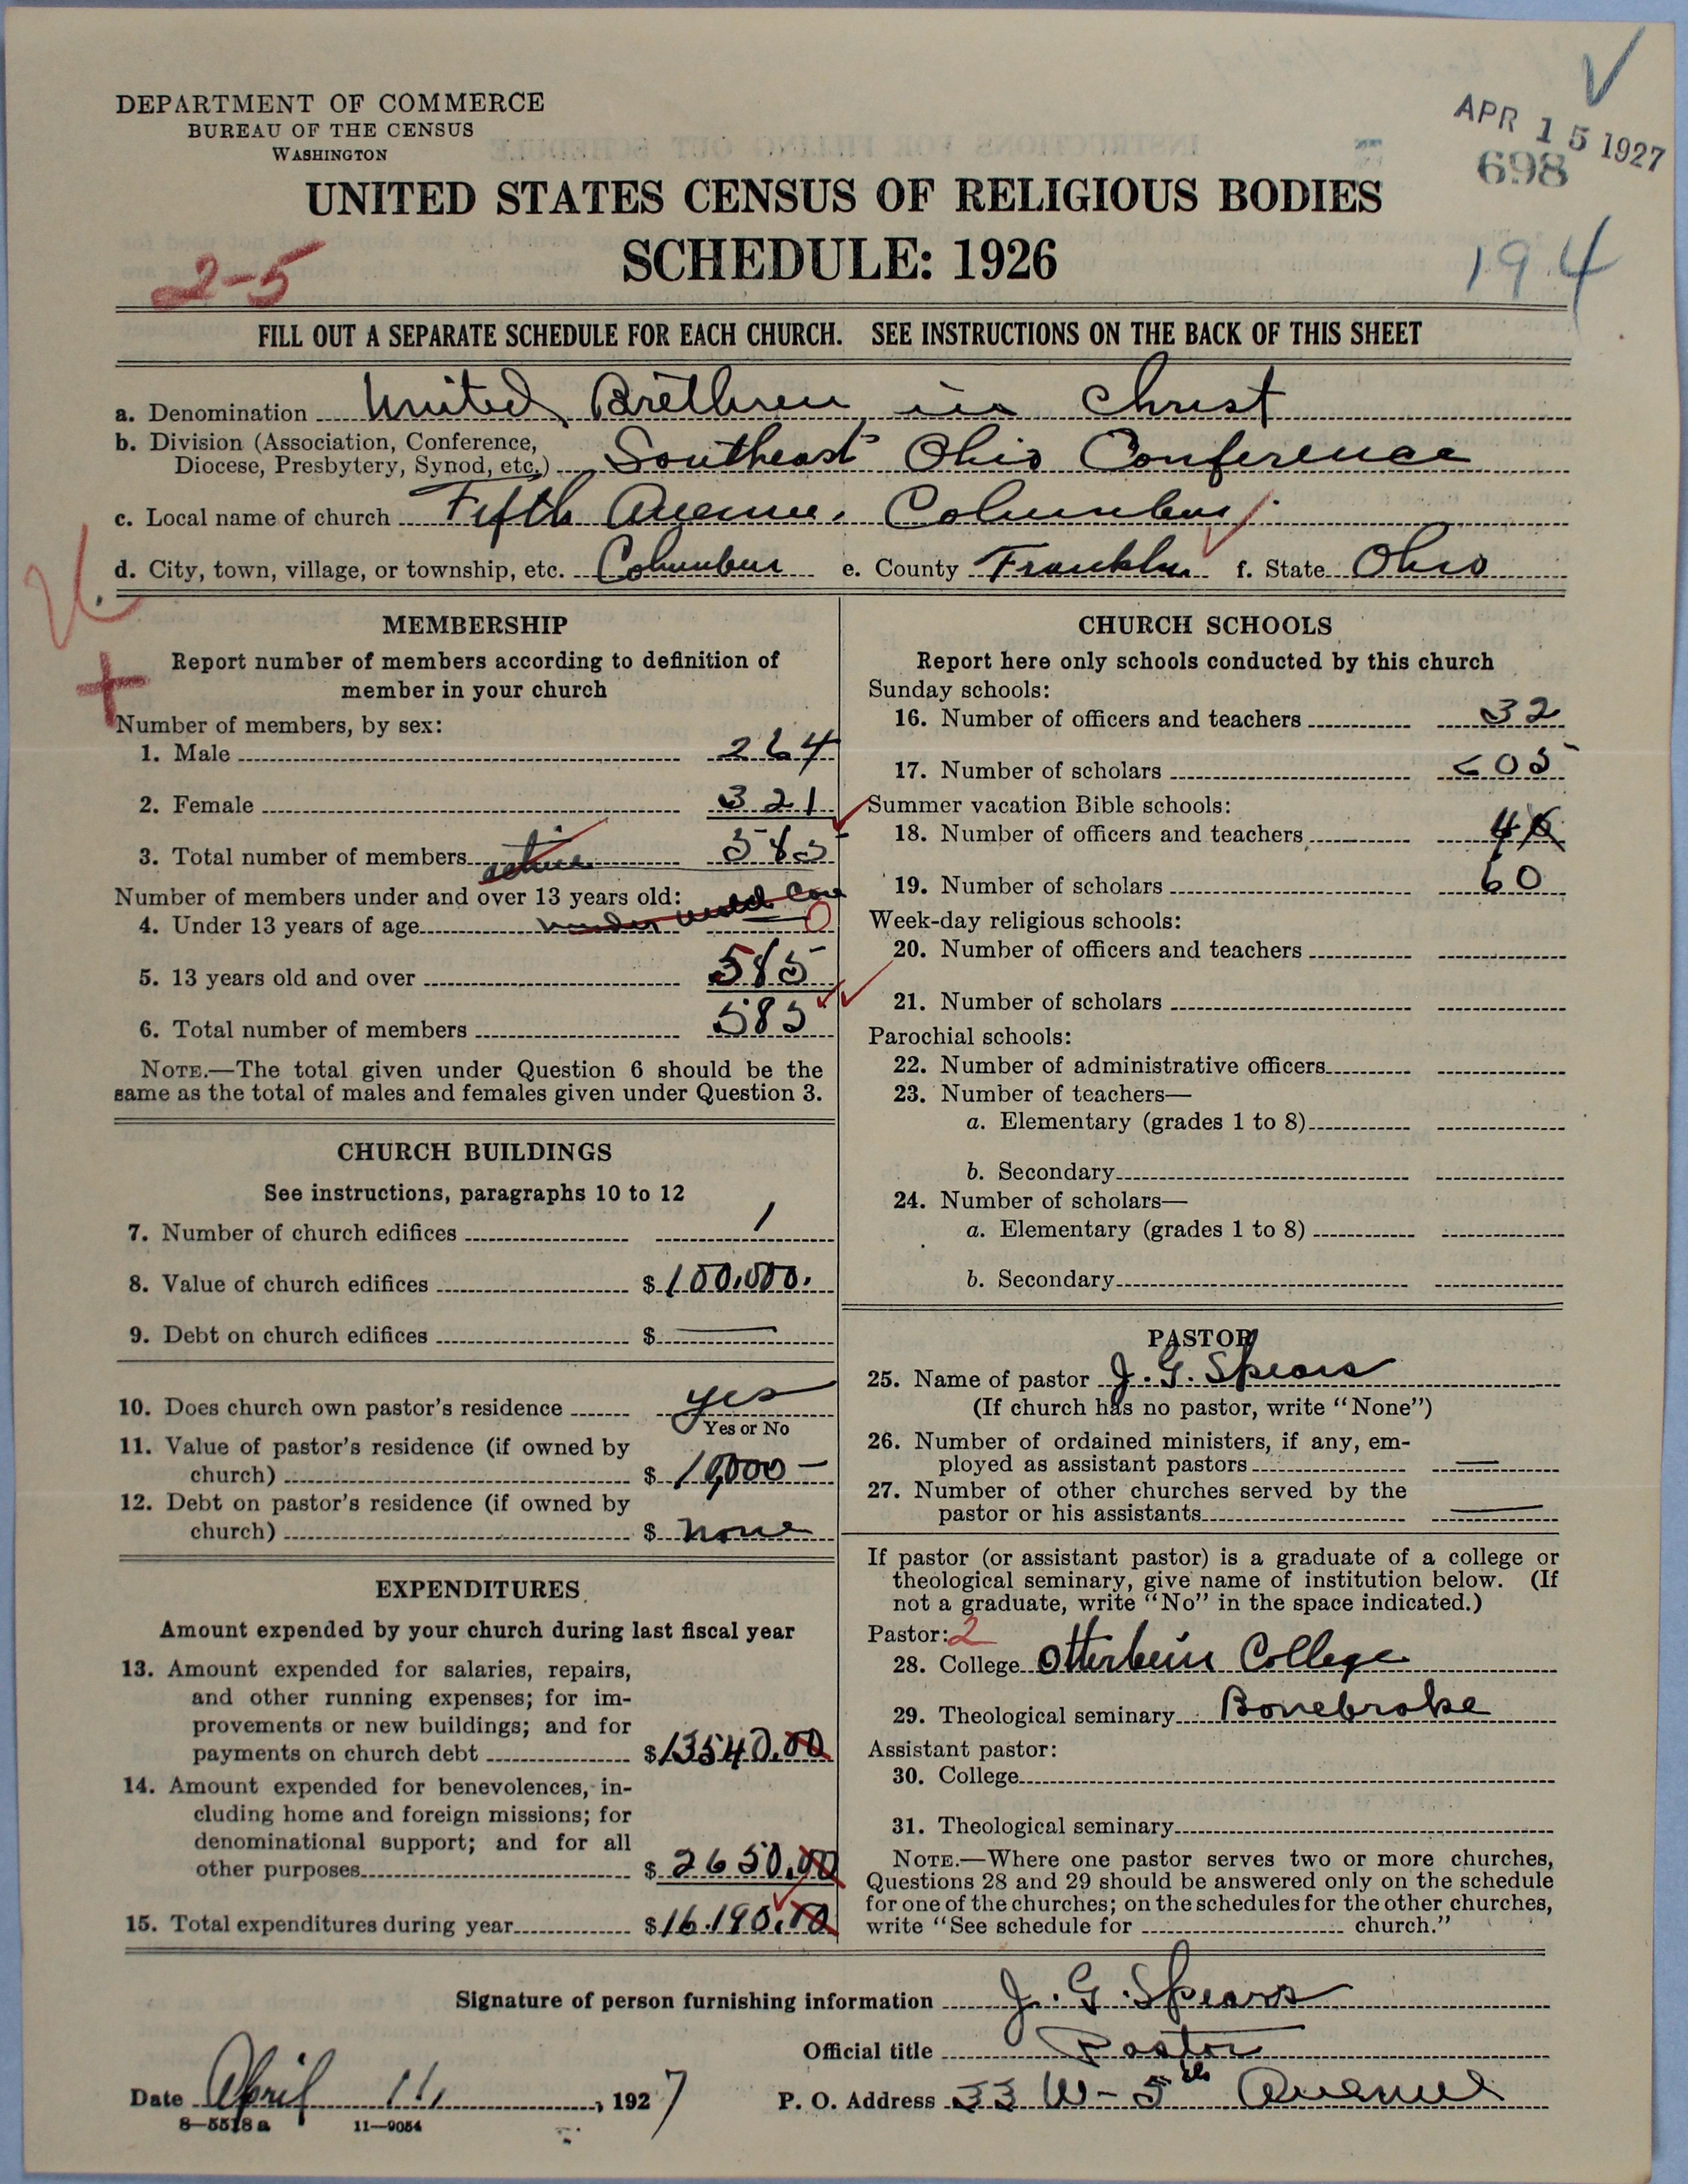 DEPARTMENT OF COMMERCE
BUREAU OF THE CENSUS
WASHINGTON
APR 15 1927
698
UNITED STATES CENSUS OF RELIGIOUS BODIES
SCHEDULE: 1926
2-5
194
FILL OUT A SEPARATE SCHEDULE FOR EACH CHURCH. SEE INSTRUCTIONS ON THE BACK OF THIS SHEET
a. Denomination United Brethren in Christ
b. Division (Association, Conference,
Diocese, Presbytery, Synod, etc.) Southeast Ohio Conference
c. Local name of church Fifth Avenue, Columbus
d. City, town, village, or township, etc. Columbus e. County Franklin f. State Ohio
MEMBERSHIP
Report number of members according to definition of
member in your church
Number of members, by sex:
1. Male 264
2. Female 321
3. Total number of members active 585
Number of members under and over 13 years old:
4. Under 13 years of age under 0
5. 13 years old and over 585
6. Total number of members 585
NOTE.—The total given under Question 6 should be the
same as the total of males and females given under Question 3.
CHURCH BUILDINGS
See instructions, paragraphs 10 to 12
7. Number of church edifices 1
8. Value of church edifices $100,000.
9. Debt on church edifices $ —
10. Does church own pastor's residence yes
Yes or No
11. Value of pastor's residence (if owned by
church) $ 10,000 —
12. Debt on pastor's residence (if owned by
church) $ none
EXPENDITURES
Amount expended by your church during last fiscal year
13. Amount expended for salaries, repairs,
and other running expenses; for im-
provements or new buildings; and for
payments on church debt $13540.00
14. Amount expended for benevolences, in-
cluding home and foreign missions; for
denominational support; and for all
other purposes $ 2650.00
15. Total expenditures during year $16.190.00
CHURCH SCHOOLS
Report here only schools conducted by this church
Sunday schools:
16. Number of officers and teachers 32
17. Number of scholars
Summer vacation Bible schools:
18. Number of officers and teachers 4
19. Number of scholars 60
Week-day religious schools:
20. Number of officers and teachers
21. Number of scholars
Parochial schools:
22. Number of administrative officers
23. Number of teachers—
a. Elementary (grades 1 to 8)
b. Secondary
24. Number of scholars—
a. Elementary (grades 1 to 8)
b. Secondary
PASTOR
25. Name of pastor J. G. Spears
(If church has no pastor, write "None")
26. Number of ordained ministers, if any, em-
ployed as assistant pastors —
27. Number of other churches served by the
pastor or his assistants —
If pastor (or assistant pastor) is a graduate of a college or
theological seminary, give name of institution below. (If
not a graduate, write "No" in the space indicated.)
Pastor: 2
28. College Otterbein College
29. Theological seminary Bonebrake
Assistant pastor:
30. College
31. Theological seminary
NOTE.—Where one pastor serves two or more churches,
Questions 28 and 29 should be answered only on the schedule
for one of the churches; on the schedules for the other churches,
write "See schedule for church."
Signature of person furnishing information J. G. Spears
Official title Pastor
Date April 11, 1927 P. O. Address 33 W - 5th Avenue
8—5518 a 11—9054